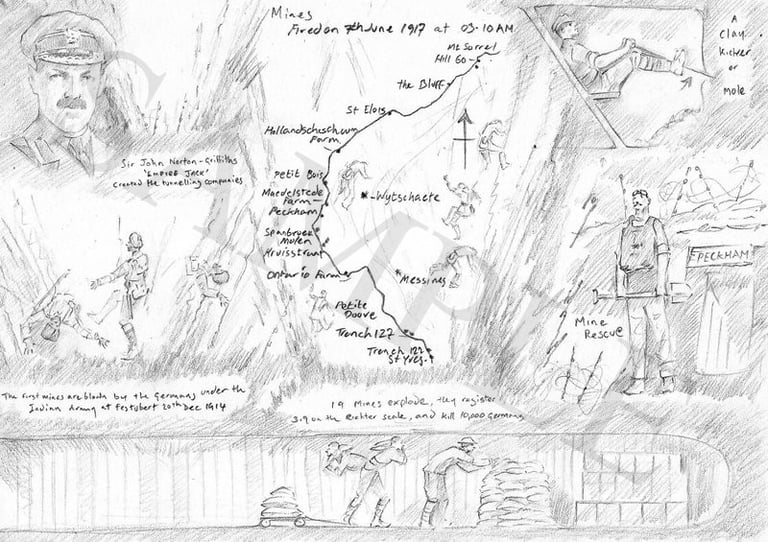 Mines
Fired on 7th June 1917 at 03.10AM
Mt Sorrel
Hill 60
the Bluff
St Elois
Hollandscheschuur
Farm
Petit Bois
Maedelstede
Farm
Peckham
Spanbroek
Molen
Kruisstraat
Ontario Farm
Petite
Douve
Trench 127
Trench 122
St Yves
Wytschaete
Messines
A
Clay
Kicker
or
Mole
Sir John Norton-Griffiths
'Empire Jack'
Created the tunnelling companies
PECKHAM
Mine
Rescue
The first mines are blown by the Germans under the
Indian Army at Festubert 20th Dec 1914
19 Mines explode, they register
3.9 on the Richter scale, and kill 10,000 Germans
SAMPLE